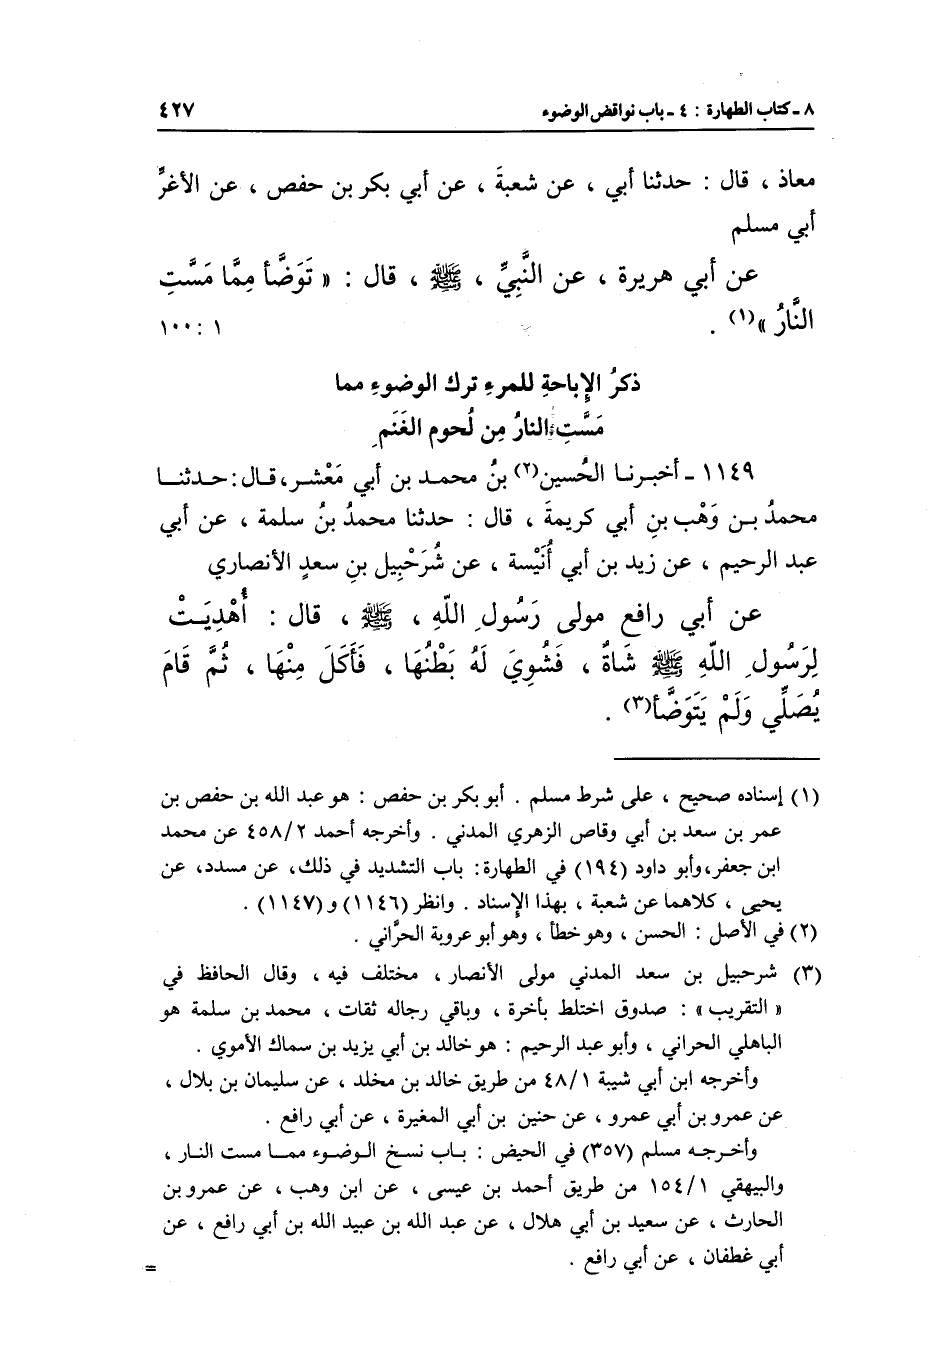 ٨ ـ كتاب الطهارة : ٤ ـ باب نواقض الوضوء ٤٢٧
معاذ ، قال : حدثنا أبي ، عن شعبةَ ، عن أبي بكر بن حفص ، عن الأغرِّ
أبي مسلم
عن أبي هريرة ، عن النَّبِيِّ ، ﷺ ، قال : « تَوَضَّأ مِمَّا مَسَّتِ
النَّارُ »(١) . ١ : ١٠٠
ذكرُ الإِباحةِ للمرءِ ترك الوضوءِ مما
مَسَّتِ النارُ مِن لُحوم الغَنَمِ
١١٤٩ ـ أخبرنا الحُسين(٢) بنُ محمد بن أبي مَعْشر، قال : حدثنا
محمدُ بن وَهْب بنِ أبي كريمةَ ، قال : حدثنا محمدُ بنُ سلمة ، عن أبي
عبد الرحيم ، عن زيد بن أبي أُنَيْسة ، عن شُرَحْبِيل بنِ سعدٍ الأنصاري
عن أبي رافع مولى رَسُولِ اللّهِ ، ﷺ ، قال : أُهْدِيَتْ
لِرَسُولِ اللّهِ ﷺ شَاةٌ ، فَشُوِيَ لَهُ بَطْنُهَا ، فَأَكَلَ مِنْهَا ، ثُمَّ قَامَ
يُصَلِّي وَلَمْ يَتَوَضَّأ(٣) .
(١) إسناده صحيح ، على شرط مسلم . أبو بكر بن حفص : هو عبد الله بن حفص بن
عمر بن سعد بن أبي وقاص الزهري المدني . وأخرجه أحمد ٤٥٨/٢ عن محمد
ابن جعفر، وأبو داود (١٩٤) في الطهارة : باب التشديد في ذلك، عن مسدد، عن
يحيى ، كلاهما عن شعبة ، بهذا الإِسناد . وانظر (١١٤٦) و (١١٤٧) .
(٢) في الأصل : الحسن ، وهو خطأ ، وهو أبو عروبة الحرَّاني .
(٣) شرحبيل بن سعد المدني مولى الأنصار ، مختلف فيه ، وقال الحافظ في
« التقريب » : صدوق اختلط بأخرة ، وباقي رجاله ثقات ، محمد بن سلمة هو
الباهلي الحراني ، وأبو عبد الرحيم : هو خالد بن أبي يزيد بن سماك الأموي .
وأخرجه ابن أبي شيبة ٤٨/١ من طريق خالد بن مخلد ، عن سليمان بن بلال ،
عن عمرو بن أبي عمرو ، عن حنين بن أبي المغيرة ، عن أبي رافع .
وأخرجه مسلم (٣٥٧) في الحيض : باب نسخ الوضوء مما مست النار ،
والبيهقي ١٥٤/١ من طريق أحمد بن عيسى ، عن ابن وهب ، عن عمرو بن
الحارث ، عن سعيد بن أبي هلال ، عن عبد الله بن عبيد الله بن أبي رافع ، عن
أبي غطفان ، عن أبي رافع .
=